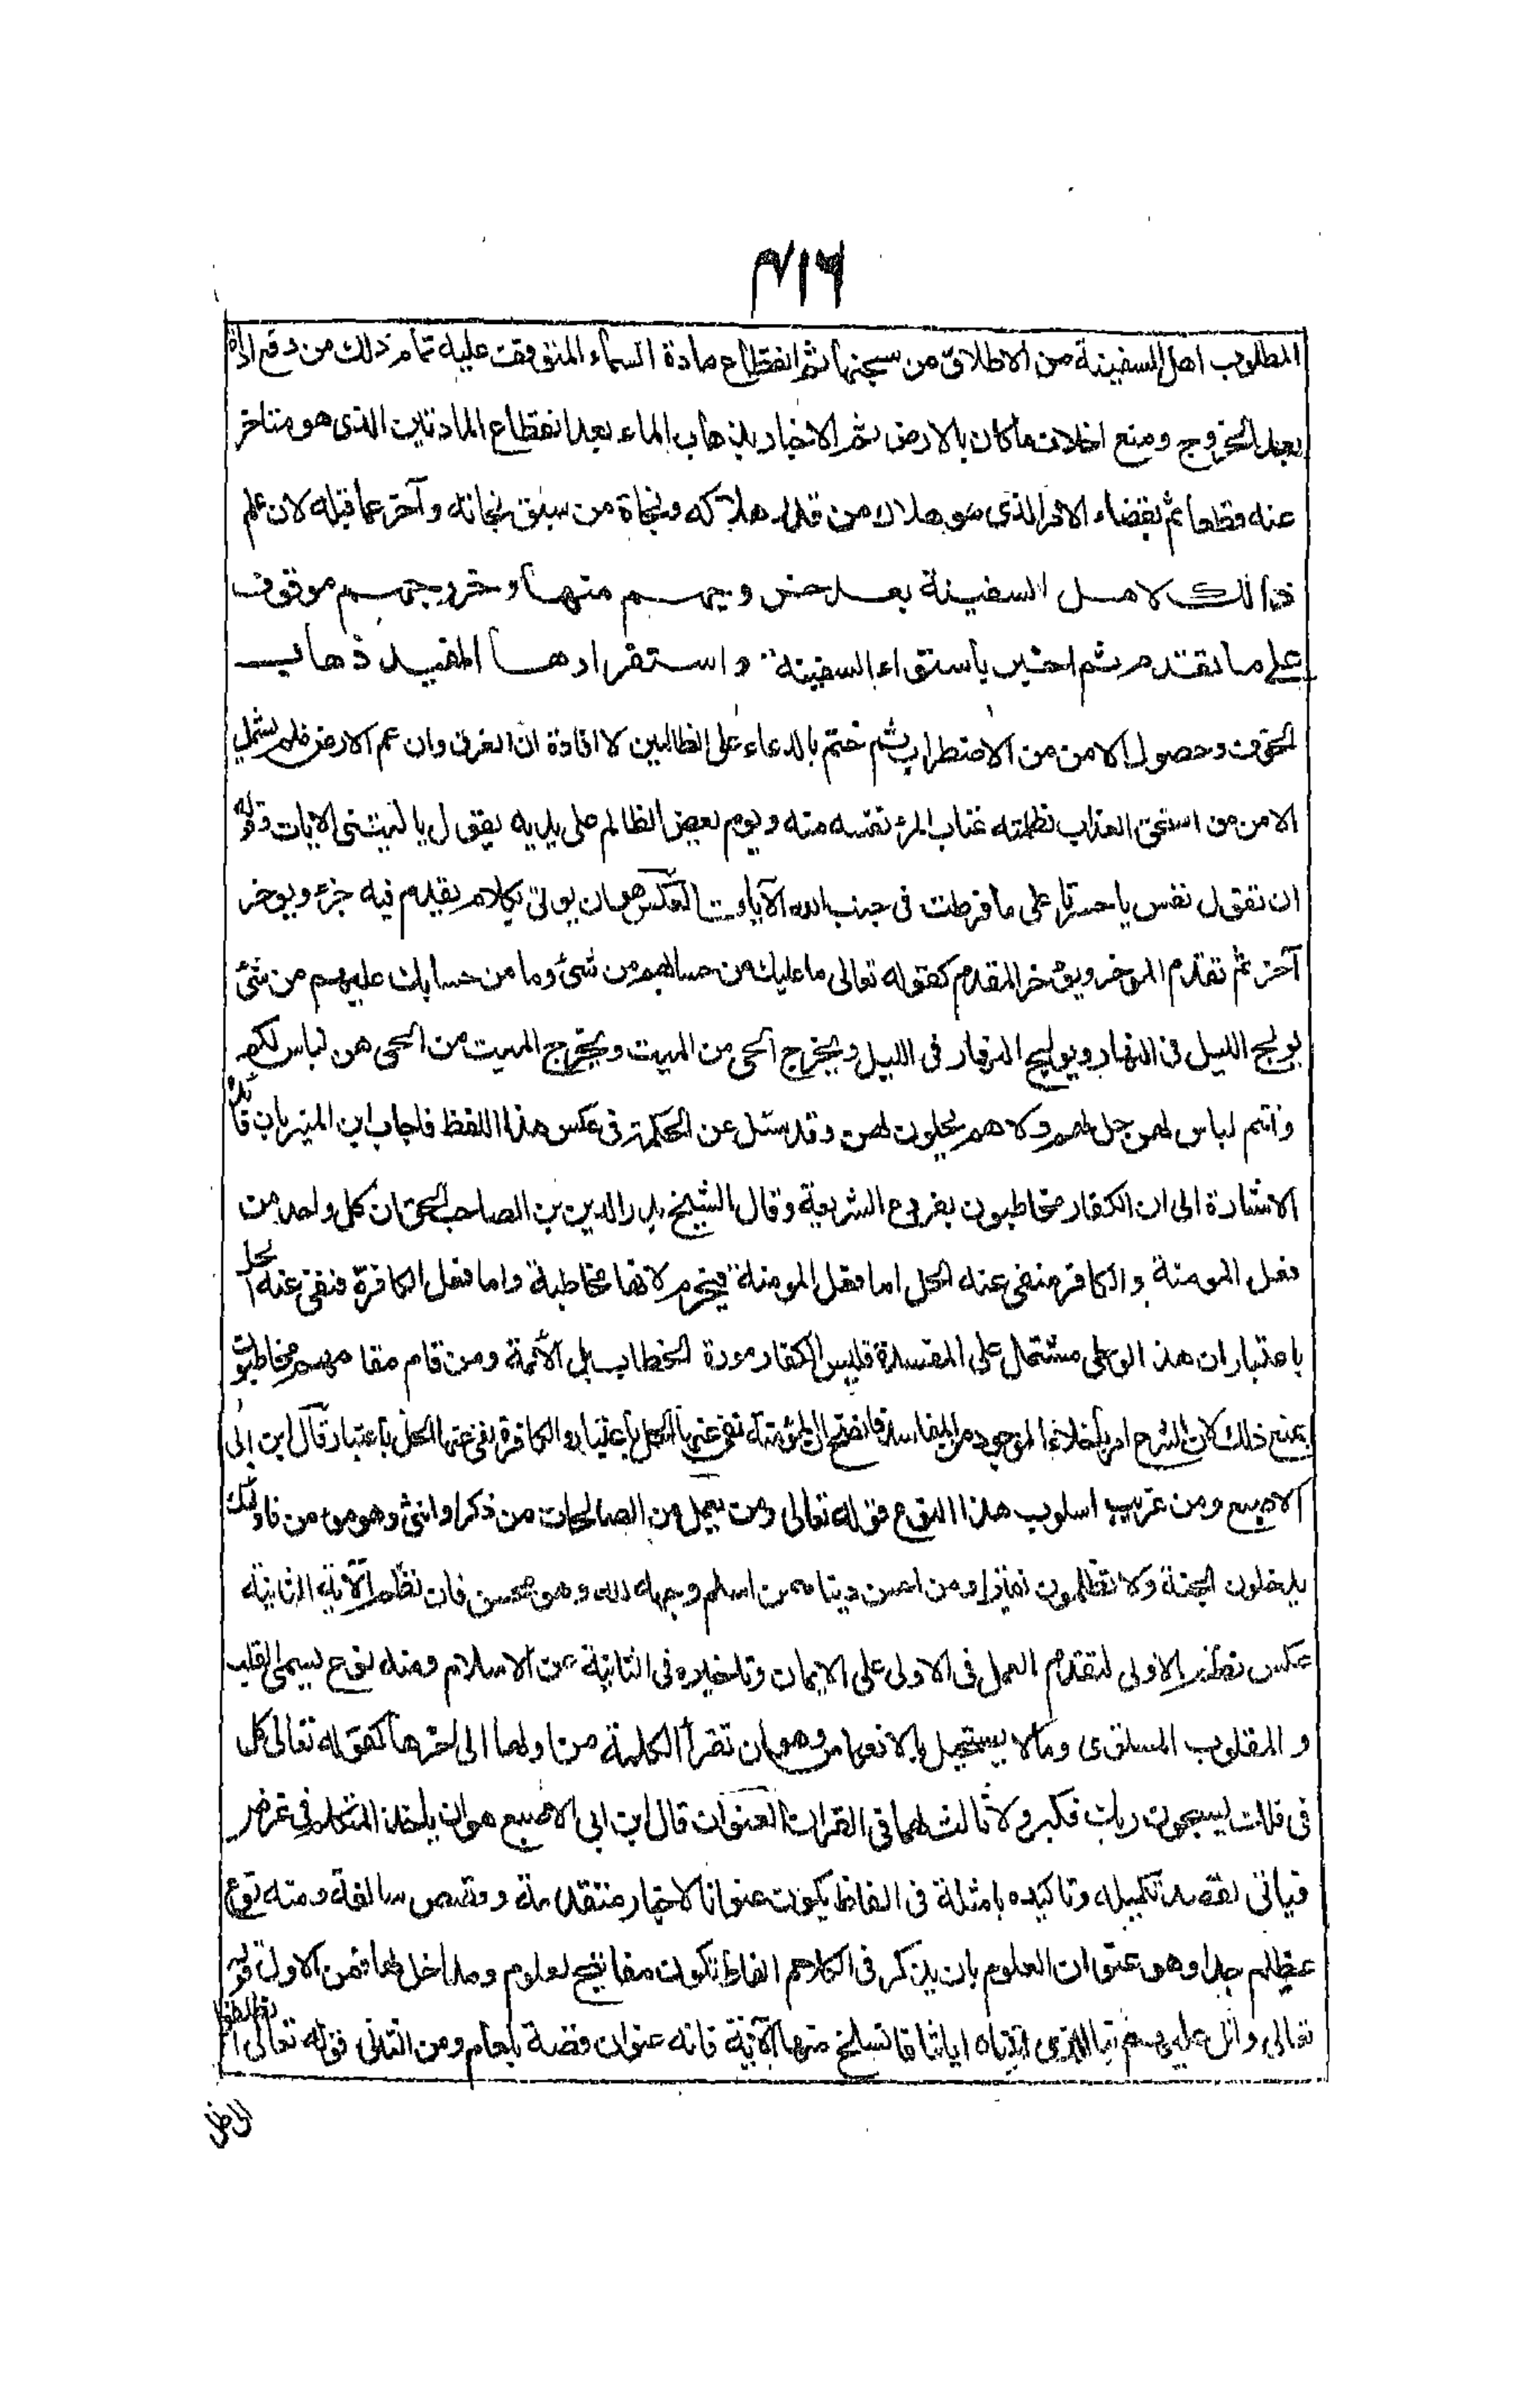 ٧١٦
المطلوب اهل السفينة من الاطلاق من سجنها ثم انقطاع مادة السماء المتوقف عليه تمام ذلك من دفع اذاه
بعد الخروج ومنع اخلاف ما كان بالارض ثم الاخبار بذهاب الماء بعد انقطاع المادتين الذى هو متاخر
عنه قطعا ثم بقضاء الامر الذى هو هلاك من قدر هلاكه ونجاة من سبق نجاته وآخر عما قبله لان علم
ذالك لاهل السفينة بعد خروجهم منها وخروجهم موقوف
على ما تقدم ثم اخبر باستواء السفينة واستقرارها المفيد ذهاب
الخوف وحصول الامن من الاضطراب ثم ختم بالدعاء على الظالمين لافادة ان الغرق وان عم الارض فلم يشمل
الا من من استحق العذاب لظلمه عتاب المرء نفسه منه ويوم يعض الظالم على يديه يقول يا ليتنى الايات وقوله
ان تقول نفس يا حسرتا على ما فرطت فى جنب الله الآيات العكس هو ان يوتى بكلام يقدم فيه جزء ويوخر
آخر ثم تقدم الموخر ويوخر المقدم كقوله تعالى ما عليك من حسابهم من شئ وما من حسابك عليهم من شئ
يولج الليل فى النهار ويولج النهار فى الليل ويخرج الحى من الميت ويخرج الميت من الحى هن لباس لكم
وانتم لباس لهن حل لهم ولا هم يحلون لهن وقد سئل عن الحكمة فى عكس هذا اللفظ فاجاب ابن المنير بان فائدته
الاشارة الى ان الكفار مخاطبون بفروع الشريعة وقال الشيخ بدر الدين بن الصاحب الحق ان كل واحد من
فعل المومنة والكافر منفى عنه الحل اما فعل المومنة فيحرم لانها مخاطبة واما فعل الكافرة فنفى عنه الحل
باعتبار ان هذا الوطى مشتمل على المفسدة فليس الكفار مورد الخطاب بل الائمة ومن قام مقامهم مخاطبون
بمنع ذلك لان الشرع امر باخلاء الوجود من المفاسد فاتضح ان المؤمنة نفى عنها الحل باعتبار والكافرة نفى عنها الحل باعتبار قال ابن ابى
الاصبع ومن غريب اسلوب هذا النوع قوله تعالى ومن يعمل من الصالحات من ذكر او انثى وهو مومن فاولئك
يدخلون الجنة ولا تظلمون نقيرا ومن احسن دينا ممن اسلم وجهه لله وهو محسن فان نظم الآية الثانية
عكس نظم الاولى لتقديم العمل فى الاولى على الايمان وتاخيره فى الثانية عن الاسلام ومنه نوع يسمى القلب
و المقلوب المستوى وما لا يستحيل بالانعكاس وهو ان تقرأ الكلمة من اولها الى اخرها كقوله تعالى كل
فى فلك يسبحون ربك فكبر ولا ثالث لهما فى القران العنوان قال ابن ابى الاصبع هو ان ياخذ المتكلم فى غرض
فياتى لقصد تكميله وتاكيده بامثلة فى الفاظ يكون عنوانا لاخبار متقدمة وقصص سالفة ومنه نوع
عظيم جدا وهو عنوان العلوم بان يذكر فى الكلام الفاظ تكون مفاتيح لعلوم ومداخل لها فمن الاول قوله
تعالى واتل عليهم نبا الذى اتيناه اياتنا فانسلخ منها الآية فانه عنوان قصة بلعام ومن الثانى قوله تعالى انطلقوا
الى ظل